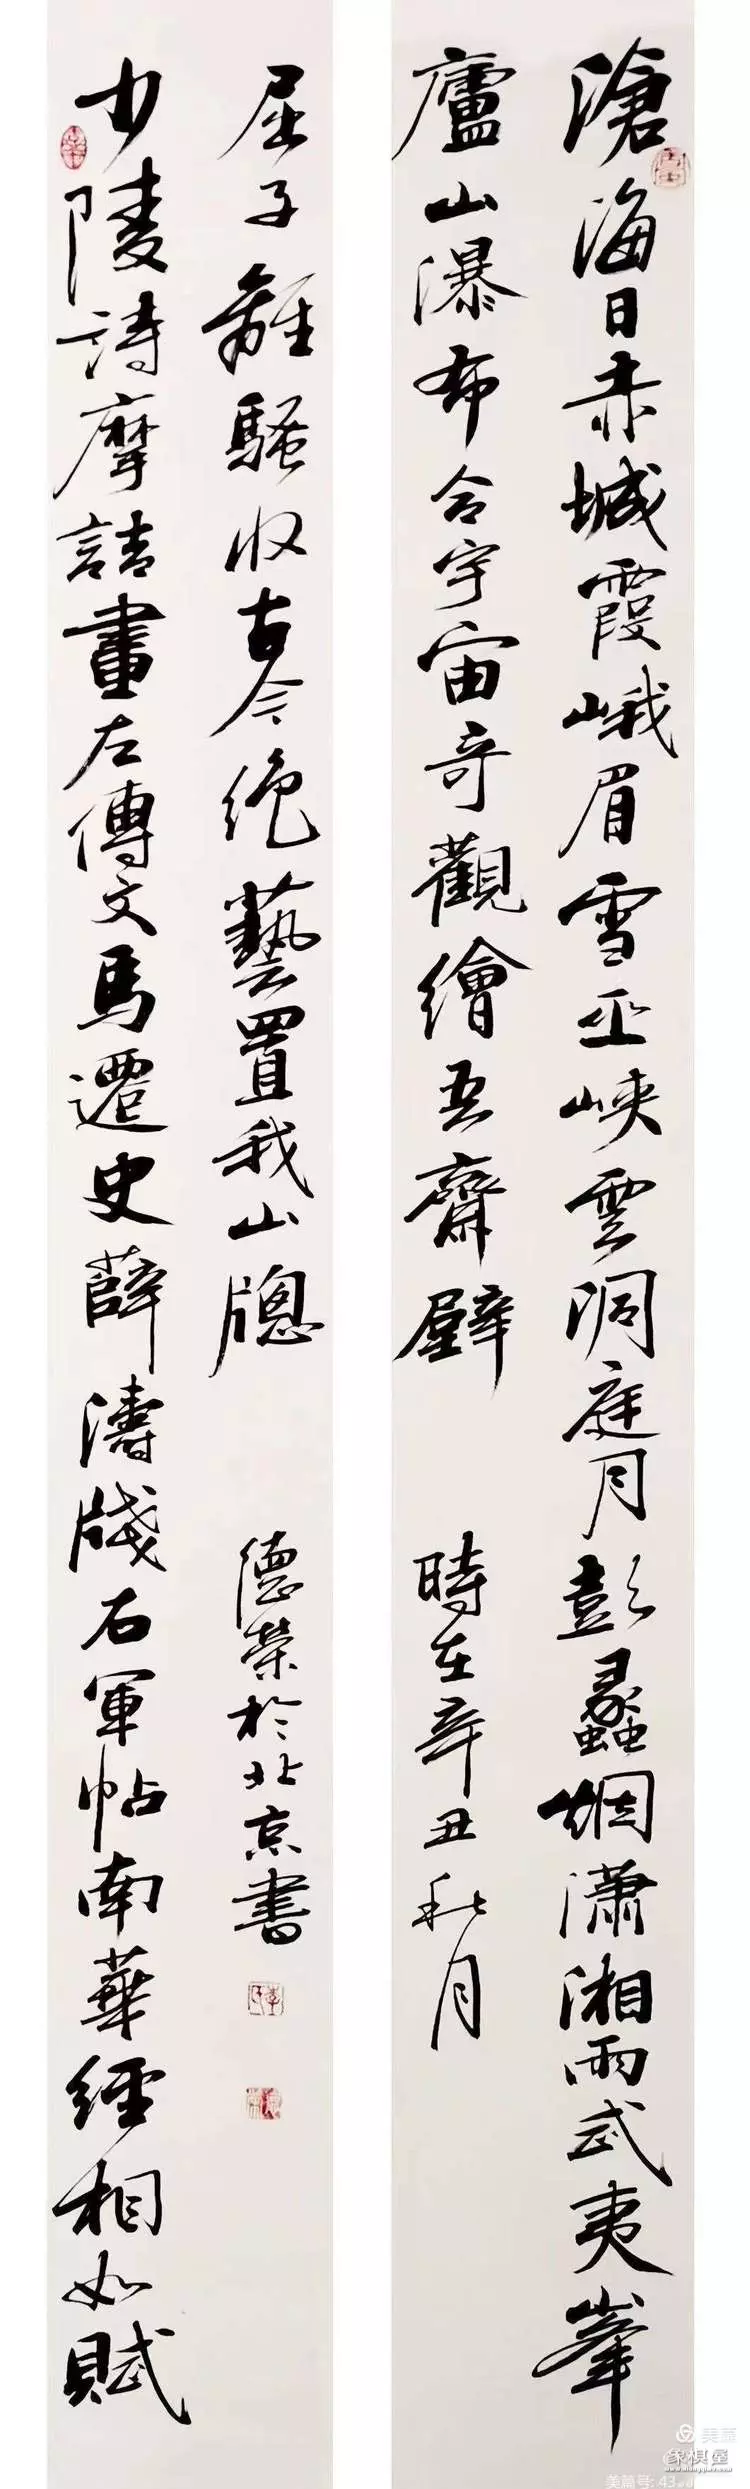 滄海日赤城霞峨眉雪巫峽雲洞庭月彭蠡烟瀟湘雨武夷峯
廬山瀑布合宇宙奇觀繪吾齋壁
時在辛丑秋月
少陵詩摩詰畫左傳文馬遷史薛濤牋右軍帖南華經相如賦
屈子離騷收古今絶藝置我山牕
德榮於北京書
象棋屋